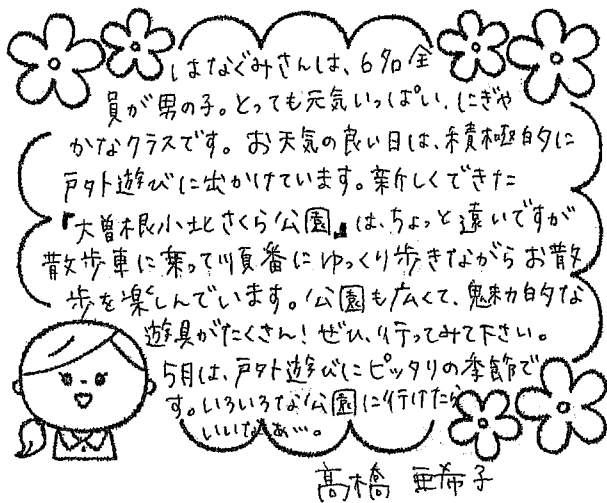 はなぐみさんは、6名全
員が男の子。とっても元気いっぱい、にぎや
かなクラスです。お天気の良い日は、積極的に
戸外遊びに出かけています。新しくできた
『大曽根小北さくら公園』は、ちょっと遠いですが
散歩車に乗って順番にゆっくり歩きながらお散
歩を楽しんでいます。公園も広くて、魅力的な
遊具がたくさん!ぜひ、行ってみて下さい。
5月は、戸外遊びにピッタリの季節で
す。いろいろな公園に行けたら
いいなぁ…。
高橋 亜希子